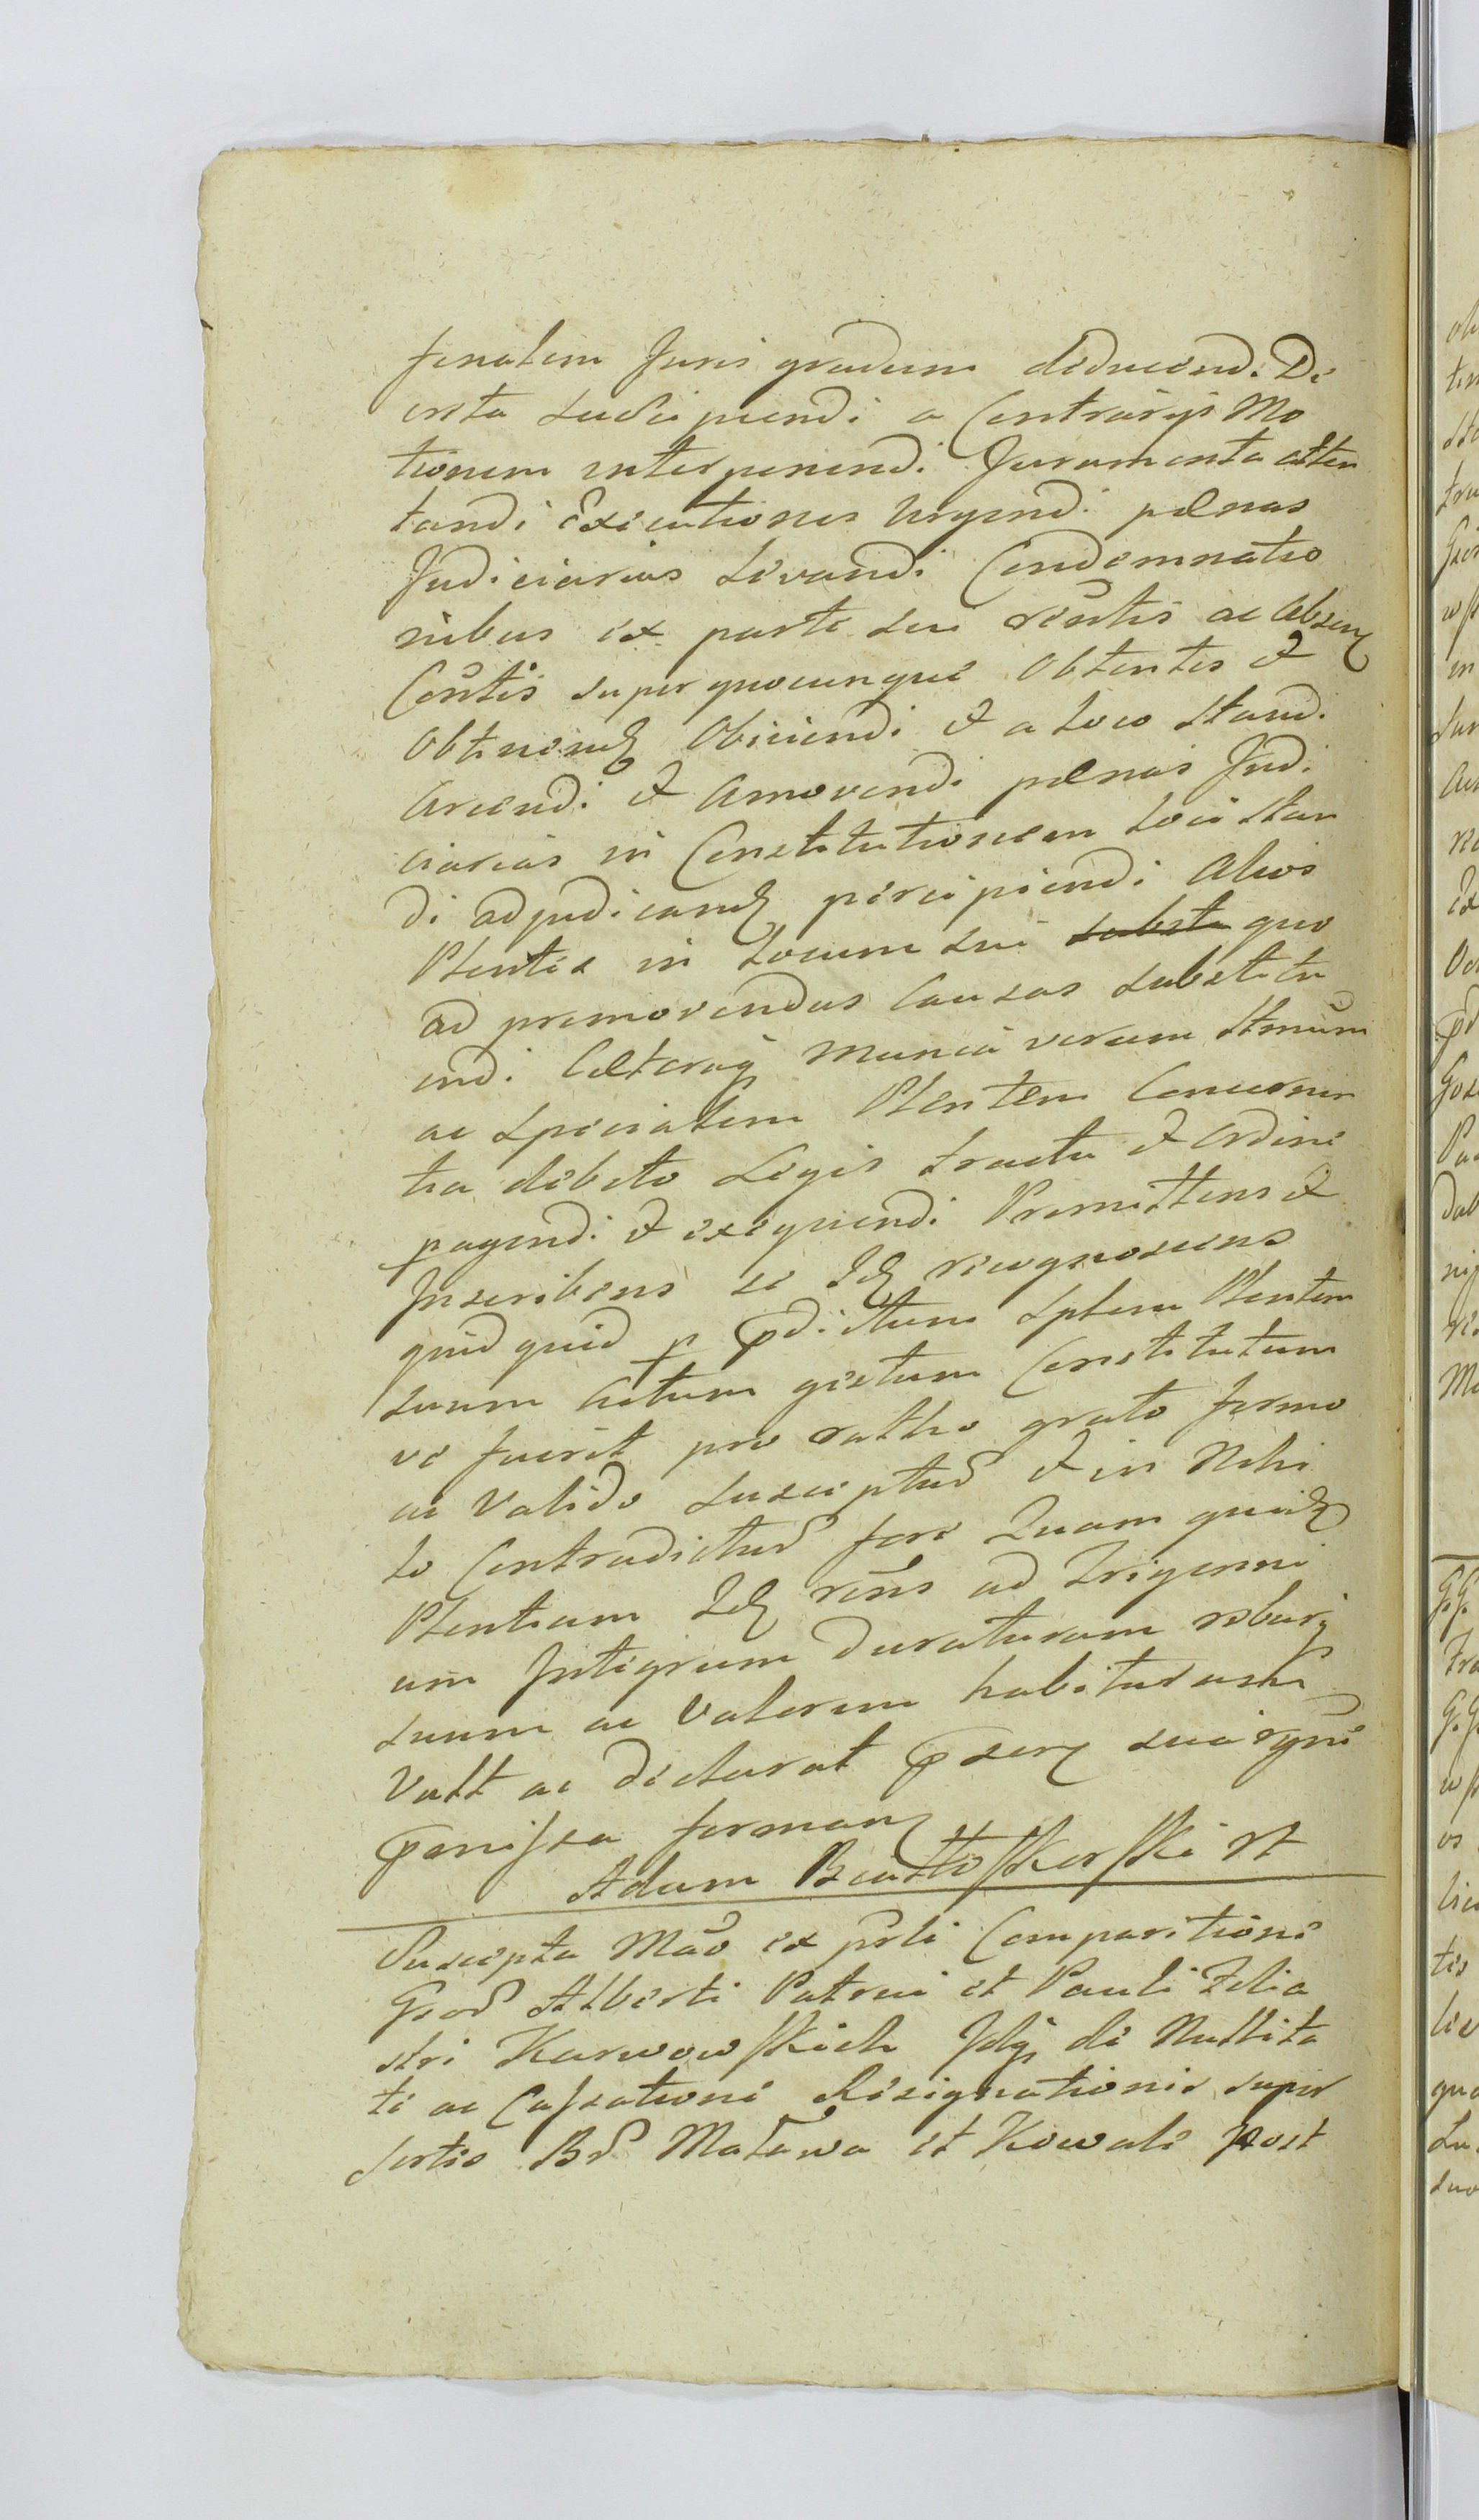 finalem Juris gradum deducend. De
creta suscipiendi a Contrarijs Mo
tionem interponendi Juramenta atten
tandi Executiones Urgendi pœnas
Judiciarias Levandi Condemnatio
nibus ex parte sui rēntis ac absen
Cōntis super quocunque Obtentis et
Obtinend Obiiciendi et a Loco Standi
Arcendi et Amovendi pœnas Judi
ciarias in Constitutionem Loci Stan
di adjudicand percipiendi Alios
Plentes in Locum sui quo
ad promovendas Causas Substitu
endi Cœteraq munia verum Itmūm
ac Specialem Plentem Concernen
tia debito Legis tractu et Ordine
pagendi et exequendi Promittens et
Inscribens se Id recognoscens
quidquid p pdictum Splem Plentem
suum Actum gestum Constitutum
ve fuerit pro ratho grato firmo
ac Valido suscepturd et in Nihi
lo Contradicturd fore Quam quid
Plentiam Id rēns ad Trigenni
um Integrum duraturam roburq
suum ac Valorem habituram
Vult ac declarat pser sui rgni
pmissa forman
Adam
Suscepta Mão ex pārti Comparitione
Gsod Alberti Patrui et Pauli Filia
stri Karwowskich Idq de Nullita
te ac Cassatione Resignationis super
sortis Bd Matawa et Kowale post